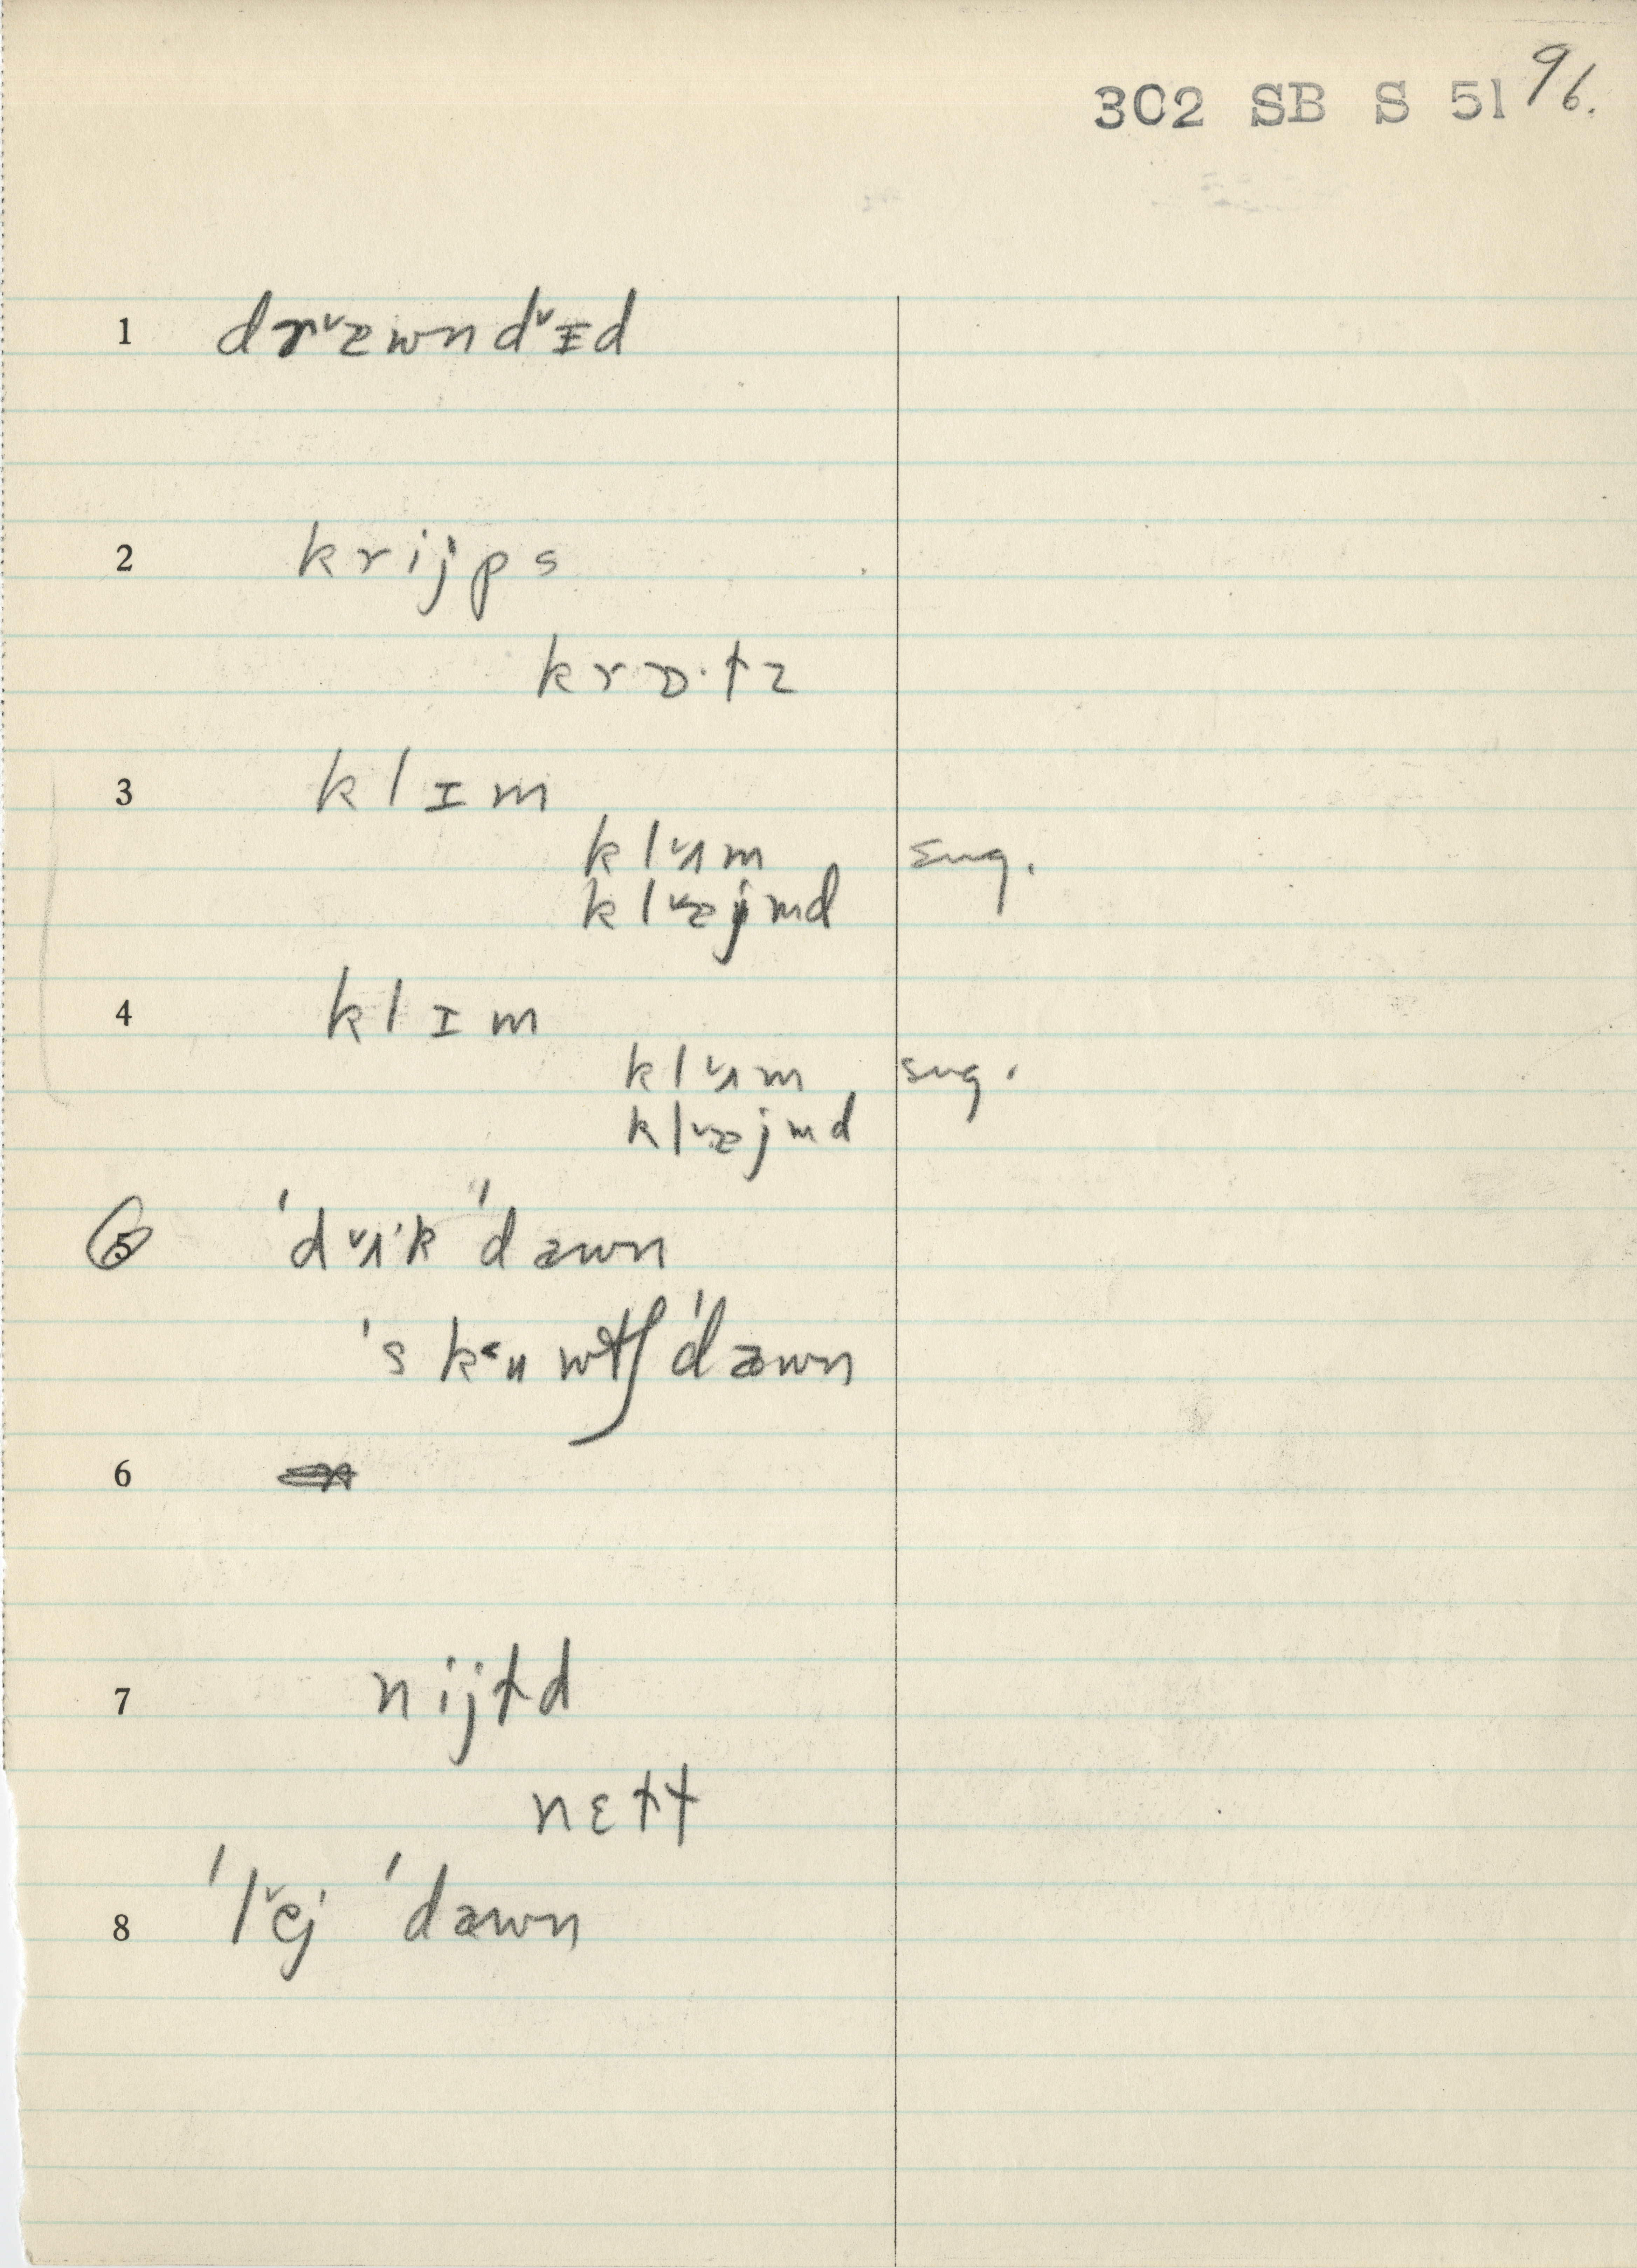 302 SB S 51 96.
1 drᵛæwndᵛɪd
2 krijps
krɒ·tz
3 klɪm
klᵛʌm sug.
klᵛæjmd
4 klɪm
klᵛʌm sug.
klᵛæjmd
5 'dᵛʌ'k 'dæwn
'skʻuwtʃ 'dæwn
6
7 nijtd
nɛtt
8 'lᵛej 'dæwn